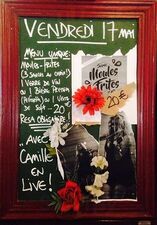 VENDREDI 17 MAI
MENU UNIQUE:
MOULES-FRITES
(3 SAUCES AU CHOIX!)
1 VERRE DE VIN
OU 1 BIÈRE PRESSION
OU 1 VERRE
DE SOFT... 20€
RESA OBLIGATOIRE!
Soirée
Moules
Frites
20€
.. AVEC
CAMILLE
EN
LIVE!